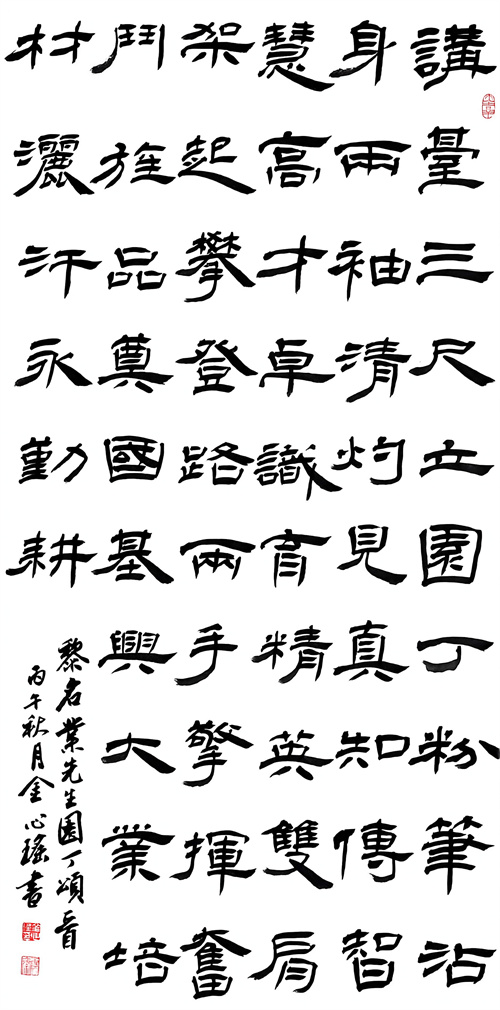 講臺三尺立園丁粉筆沾
身兩袖清灼見真知傳智
慧高才卓識育精英雙肩
架起攀登路兩手擎揮奮
鬥旌品奠國基興大業培
材灑汗永勤耕
黎名業先生園丁頌一首
丙午秋月金心瑤書